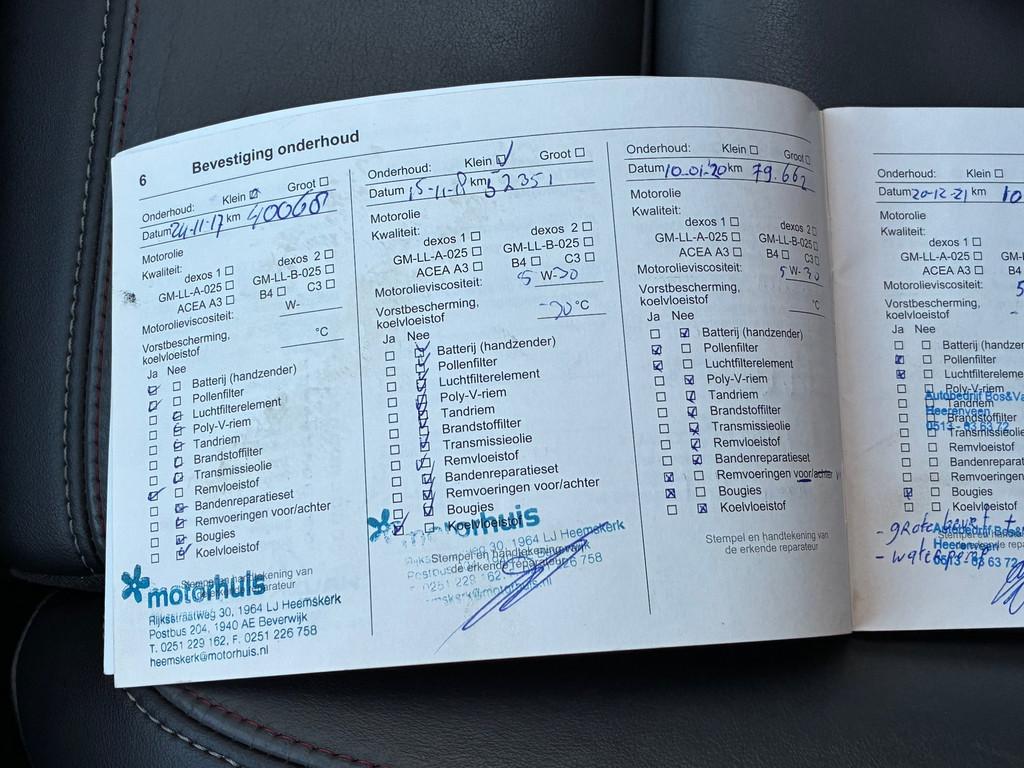 6 Bevestiging onderhoud
Onderhoud: Klein ☑ Groot ☐
Datum 24-11-17 km 40068
Motorolie
Kwaliteit:
dexos 1 ☐ dexos 2 ☐
GM-LL-A-025 ☐ GM-LL-B-025 ☐
ACEA A3 ☐ B4 ☐ C3 ☐
Motorolieviscositeit: W-
Vorstbescherming,
koelvloeistof °C
Ja Nee
☑ ☐ Batterij (handzender)
☑ ☐ Pollenfilter
☐ ☑ Luchtfilterelement
☐ ☑ Poly-V-riem
☐ ☑ Tandriem
☐ ☑ Brandstoffilter
☐ ☑ Transmissieolie
☑ ☐ Remvloeistof
☐ ☑ Bandenreparatieset
☐ ☑ Remvoeringen voor/achter
☐ ☑ Bougies
☐ ☑ Koelvloeistof
Stempel en handtekening van
de erkende reparateur
motorhuis
Rijksstraatweg 30, 1964 LJ Heemskerk
Postbus 204, 1940 AE Beverwijk
T. 0251 229 162, F. 0251 226 758
heemskerk@motorhuis.nl
Onderhoud: Klein ☑ Groot ☐
Datum 15-11-8 km 52351
Motorolie
Kwaliteit:
dexos 1 ☐ dexos 2 ☐
GM-LL-A-025 ☐ GM-LL-B-025 ☐
ACEA A3 ☐ B4 ☐ C3 ☐
Motorolieviscositeit: 5 W-30
Vorstbescherming,
koelvloeistof -20 °C
Ja Nee
☐ ☑ Batterij (handzender)
☐ ☑ Pollenfilter
☐ ☑ Luchtfilterelement
☐ ☑ Poly-V-riem
☐ ☑ Tandriem
☐ ☑ Brandstoffilter
☐ ☑ Transmissieolie
☐ ☑ Remvloeistof
☐ ☑ Bandenreparatieset
☐ ☑ Remvoeringen voor/achter
☐ ☑ Bougies
☑ ☐ Koelvloeistof
Stempel en handtekening van
de erkende reparateur
motorhuis
Rijksstraatweg 30, 1964 LJ Heemskerk
Onderhoud: Klein ☐ Groot ☐
Datum 10-01-'20 km 79.662
Motorolie
Kwaliteit:
dexos 1 ☐ dexos 2 ☐
GM-LL-A-025 ☐ GM-LL-B-025 ☐
ACEA A3 ☐ B4 ☐ C3 ☐
Motorolieviscositeit: 5 W-30
Vorstbescherming,
koelvloeistof °C
Ja Nee
☐ ☑ Batterij (handzender)
☑ ☐ Pollenfilter
☑ ☐ Luchtfilterelement
☐ ☑ Poly-V-riem
☐ ☑ Tandriem
☐ ☑ Brandstoffilter
☐ ☑ Transmissieolie
☐ ☑ Remvloeistof
☐ ☑ Bandenreparatieset
☒ ☐ Remvoeringen voor/achter
☒ ☐ Bougies
☐ ☒ Koelvloeistof
Stempel en handtekening van
de erkende reparateur
Onderhoud: Klein ☐
Datum 20-12-21 km 10
Motorolie
Kwaliteit:
dexos 1 ☐
GM-LL-A-025 ☐
ACEA A3 ☐
Motorolieviscositeit: 5
Vorstbescherming,
koelvloeistof
Ja Nee
☐ ☐ Batterij (handzender
☒ ☐ Pollenfilter
☒ ☐ Luchtfiltereleme
☐ ☐ Poly-V-riem
☐ ☐ Tandriem
☐ ☐ Brandstoffilter
☐ ☐ Transmissieolie
☐ ☐ Remvloeistof
☐ ☐ Bandenreparat
☐ ☐ Remvoeringen
☒ ☐ Bougies
☐ ☐ Koelvloeistof
Autobedrijf Bos&Va
Heerenveen
0513 - 63 63 72
- grote beurt +
Autobedrijf Bos&
Heerenveen
0513 - 63 63 72